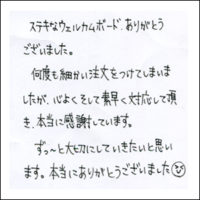 ステキなウェルカムボード、ありがとう
ございました。
何度も細かい注文をつけてしまいま
したが、心よくそして素早く対応して頂
き、本当に感謝しています。
ずっ〜と大切にしていきたいと思い
ます。本当にありがとうございました